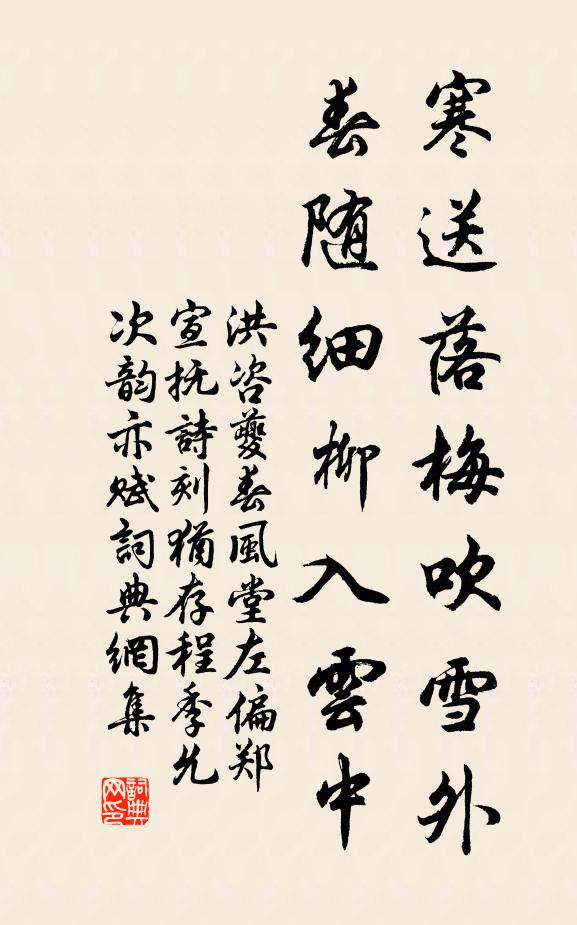 寒送落梅吹雪外
春随细柳入雲中
洪咨夔春風堂左偏郑
宣抚詩刻猶存程季允
次韵亦赋詞典網集
詞典网印